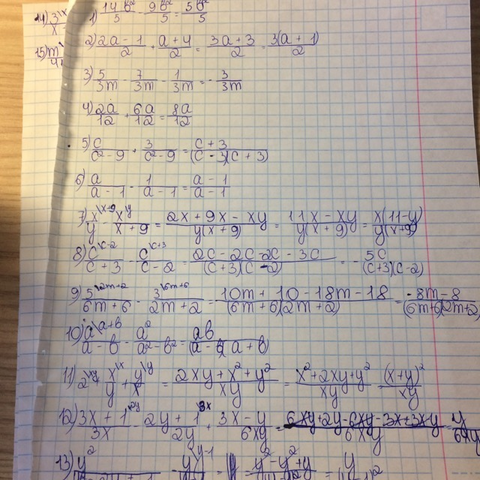 14) 3^\x / x
1) 14b²/5 - 9b²/5 = 5b²/5
15) m
2) (2a-1)/2 + (a+4)/2 = (3a+3)/2 = 3(a+1)/2
3) 5/3m - 7/3m - 1/3m = - 3/3m
4) 2a/12 + 6a/12 = 8a/12
5) c/(c²-9) + 3/(c²-9) = (c+3)/((c-3)(c+3))
6) a/(a-1) - 1/(a-1) = (a-1)/(a-1)
7) x^\x+9 / y - x^\y / (x+9) = (2x+9x-xy)/(y(x+9)) = (11x-xy)/(y(x+9)) = x(11-y)/(y(x+9))
8) c^\c-2 / (c+3) - c^\c+3 / (c-2) = (2c-2c-2c-3c)/((c+3)(c-2)) = - 5c/((c+3)(c-2))
9) 5^\2m+2 / (6m+6) - 3^\6m+6 / (2m+2) = (10m+10-18m-18)/((6m+6)(2m+2)) = (-8m-8)/((6m+6)(2m+2))
10) a^\a+b / (a-b) - a²/(a²-b²) = ab/((a-b)(a+b))
11) 2^\xy + x^\x / y + y^\y / x = (2xy+x²+y²)/xy = (x²+2xy+y²)/xy = (x+y)²/xy
12) (3x+1)^\2y / 3x - (2y+1)^\3x / 2y + (3x-y)/6xy = (6xy+2y-6xy-3x+3x-y)/6xy = y/6xy
13) y² - y^\y-1 = (y²-y²+y) = y